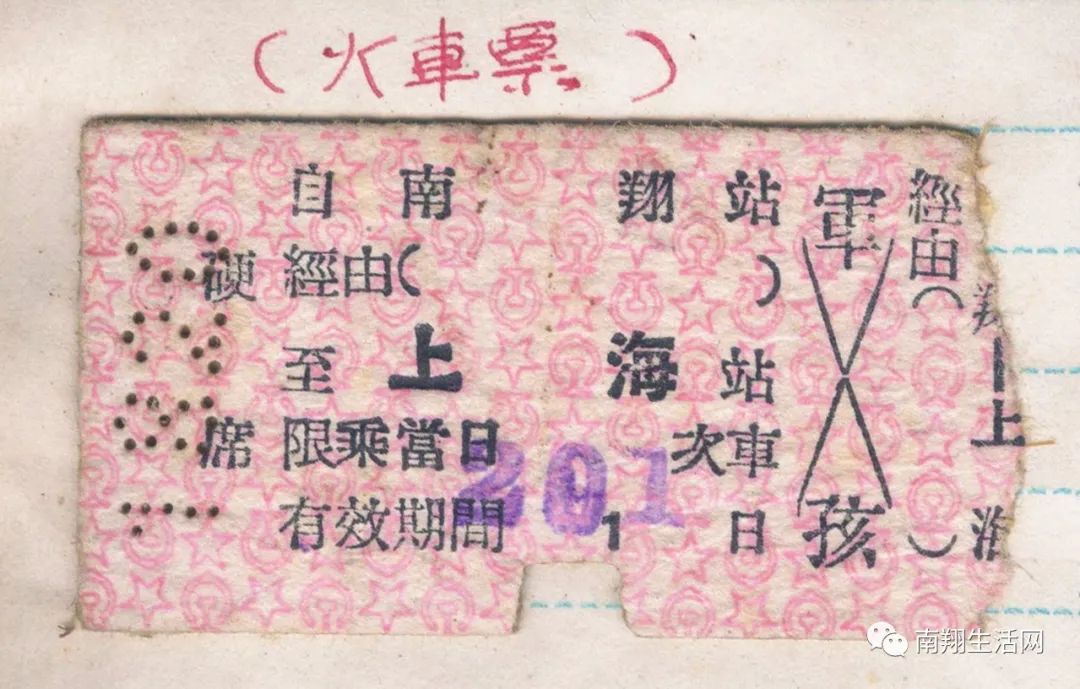 （火車票）
自南翔站
硬 經由( )
至上海站
席 限乘當日201次車
有效期間1日
軍
孩
經由( )
翔—上海
南翔生活网